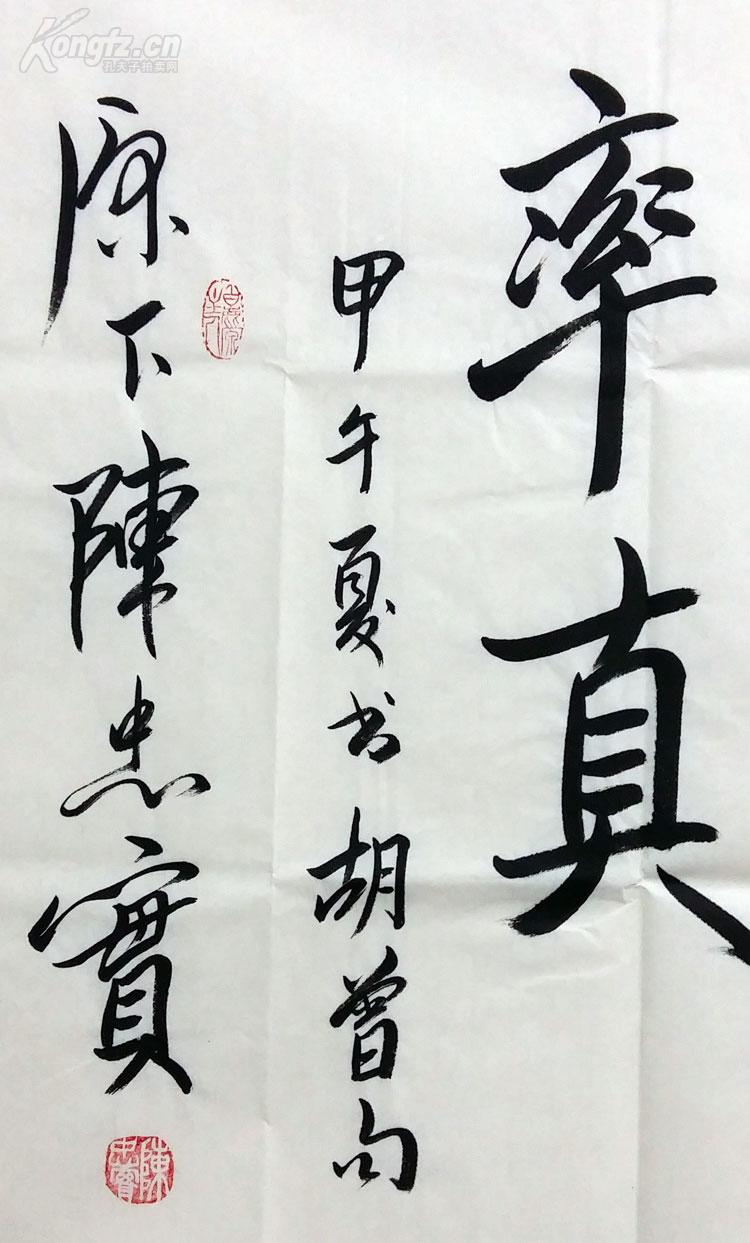 率真
甲午夏书胡曾句
原下陳忠實
陳忠實
Kongfz.cn
孔夫子拍卖网